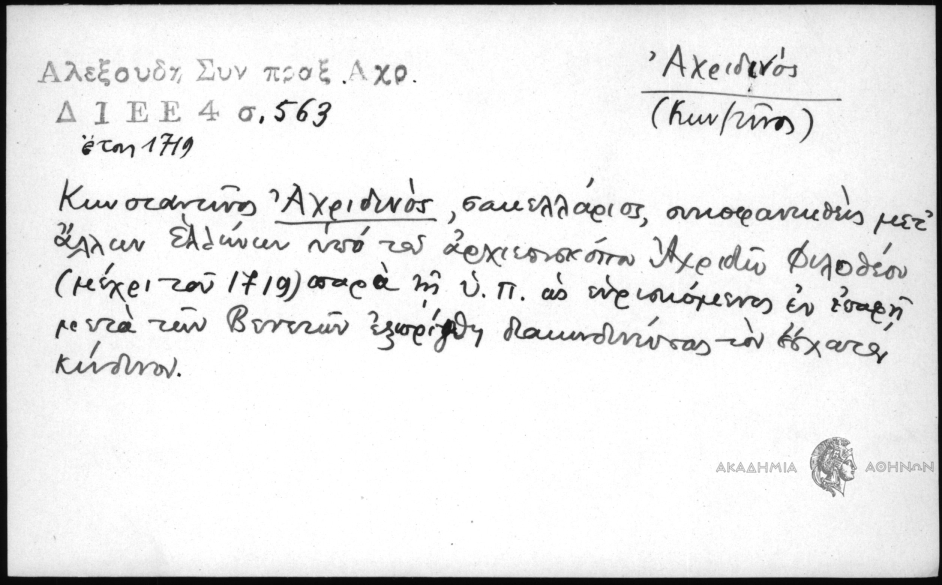 Αλεξουδη Συν πραξ. Αχρ.
Δ Ι Ε Ε 4 σ. 563
ἔτους 1719
Ἀχριδινός
(Κων/τῖνος)
Κωνσταντῖνος Ἀχριδινὸς, σακελλάριος, συκοφαντηθεὶς μετ'
ἄλλων Ἑλλήνων ὑπό τοῦ ἀρχιεπισκόπου Ἀχριδῶν Φιλοθέου
(μέχρι τοῦ 1719) παρὰ τῇ Ὑ. Π. ὡς εὑρισκόμενος ἐν ἐπαφῇ
μετὰ τῶν Βενετῶν ἐξωρίσθη διακινδυνεύσας τὸν ἔσχατον
κίνδυνον.
ΑΚΑΔΗΜΙΑ ΑΘΗΝΩΝ